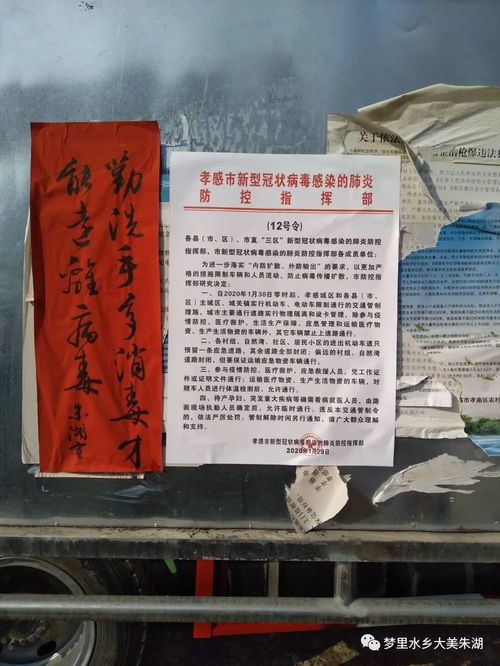 勤洗手多消毒才
能远離病毒 朱湖宣
孝感市新型冠状病毒感染的肺炎
防控指挥部
(12号令)
各县（市、区）、市直“三区”新型冠状病毒感染的肺炎防控
指挥部，市新型冠状病毒感染的肺炎防控指挥部各成员单位：
为进一步落实“内防扩散、外防输出”的要求，以更加严
格的措施限制车辆和人员流动，防止病毒传播扩散，市防控指
挥部研究决定：
一、自2020年1月30日零时起，孝感城区和各县（市、
区）主城区、城关镇实行机动车、电动车限制通行的交通管制
措施，城市主要通行道路实行物理隔离和设卡管理，除参与疫
情防控、医疗救护、生活生产保障、应急管理和运输医疗物
资、生产生活物资的车辆外，其它车辆禁止上道路通行。
二、各村组、自然湾、社区、居民小区的进出机动车道只
预留一条应急道路，其余道路全部封闭；偏远的村组、自然湾
道路封闭，但要保证运输应急物资车辆通行。
三、参与疫情防控、医疗救护、应急救援人员，凭工作证
件或证明文件通行；运输医疗物资、生产生活物资的车辆，对
随车人员进行体温检测后，允许通行。
四、待产孕妇、突发重大疾病等确需看病就医人员，由路
面现场执勤人员确定后，允许临时通行。违反本交通管制令
的，依法严厉处罚。管制解除时间另行通知，请广大群众理解
和支持。
孝感市新型冠状病毒感染的肺炎防控指挥部
2020年1月29日
关于依法
枪爆违法
梦里水乡大美朱湖